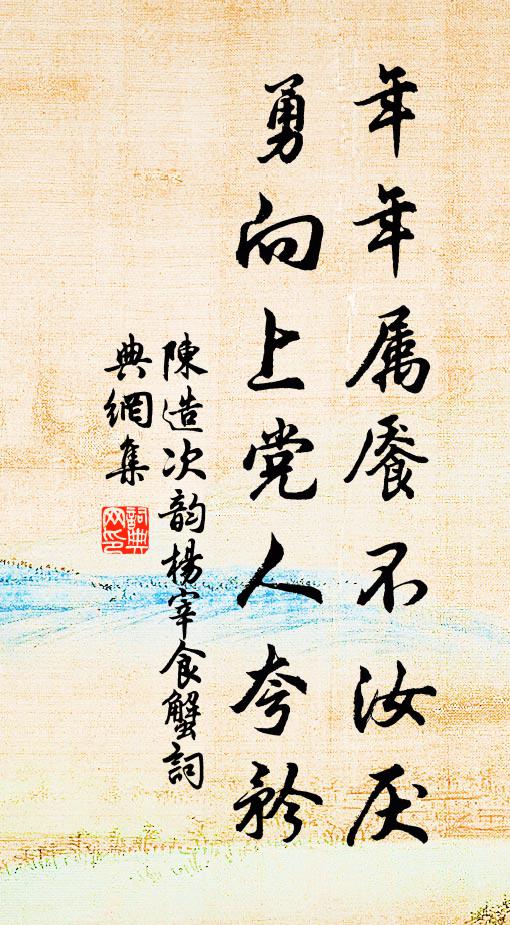 年年属餍不汝厌
勇向上党人夸矜
陳造次韵楊宰食蟹詞
典網集
詞典
网印